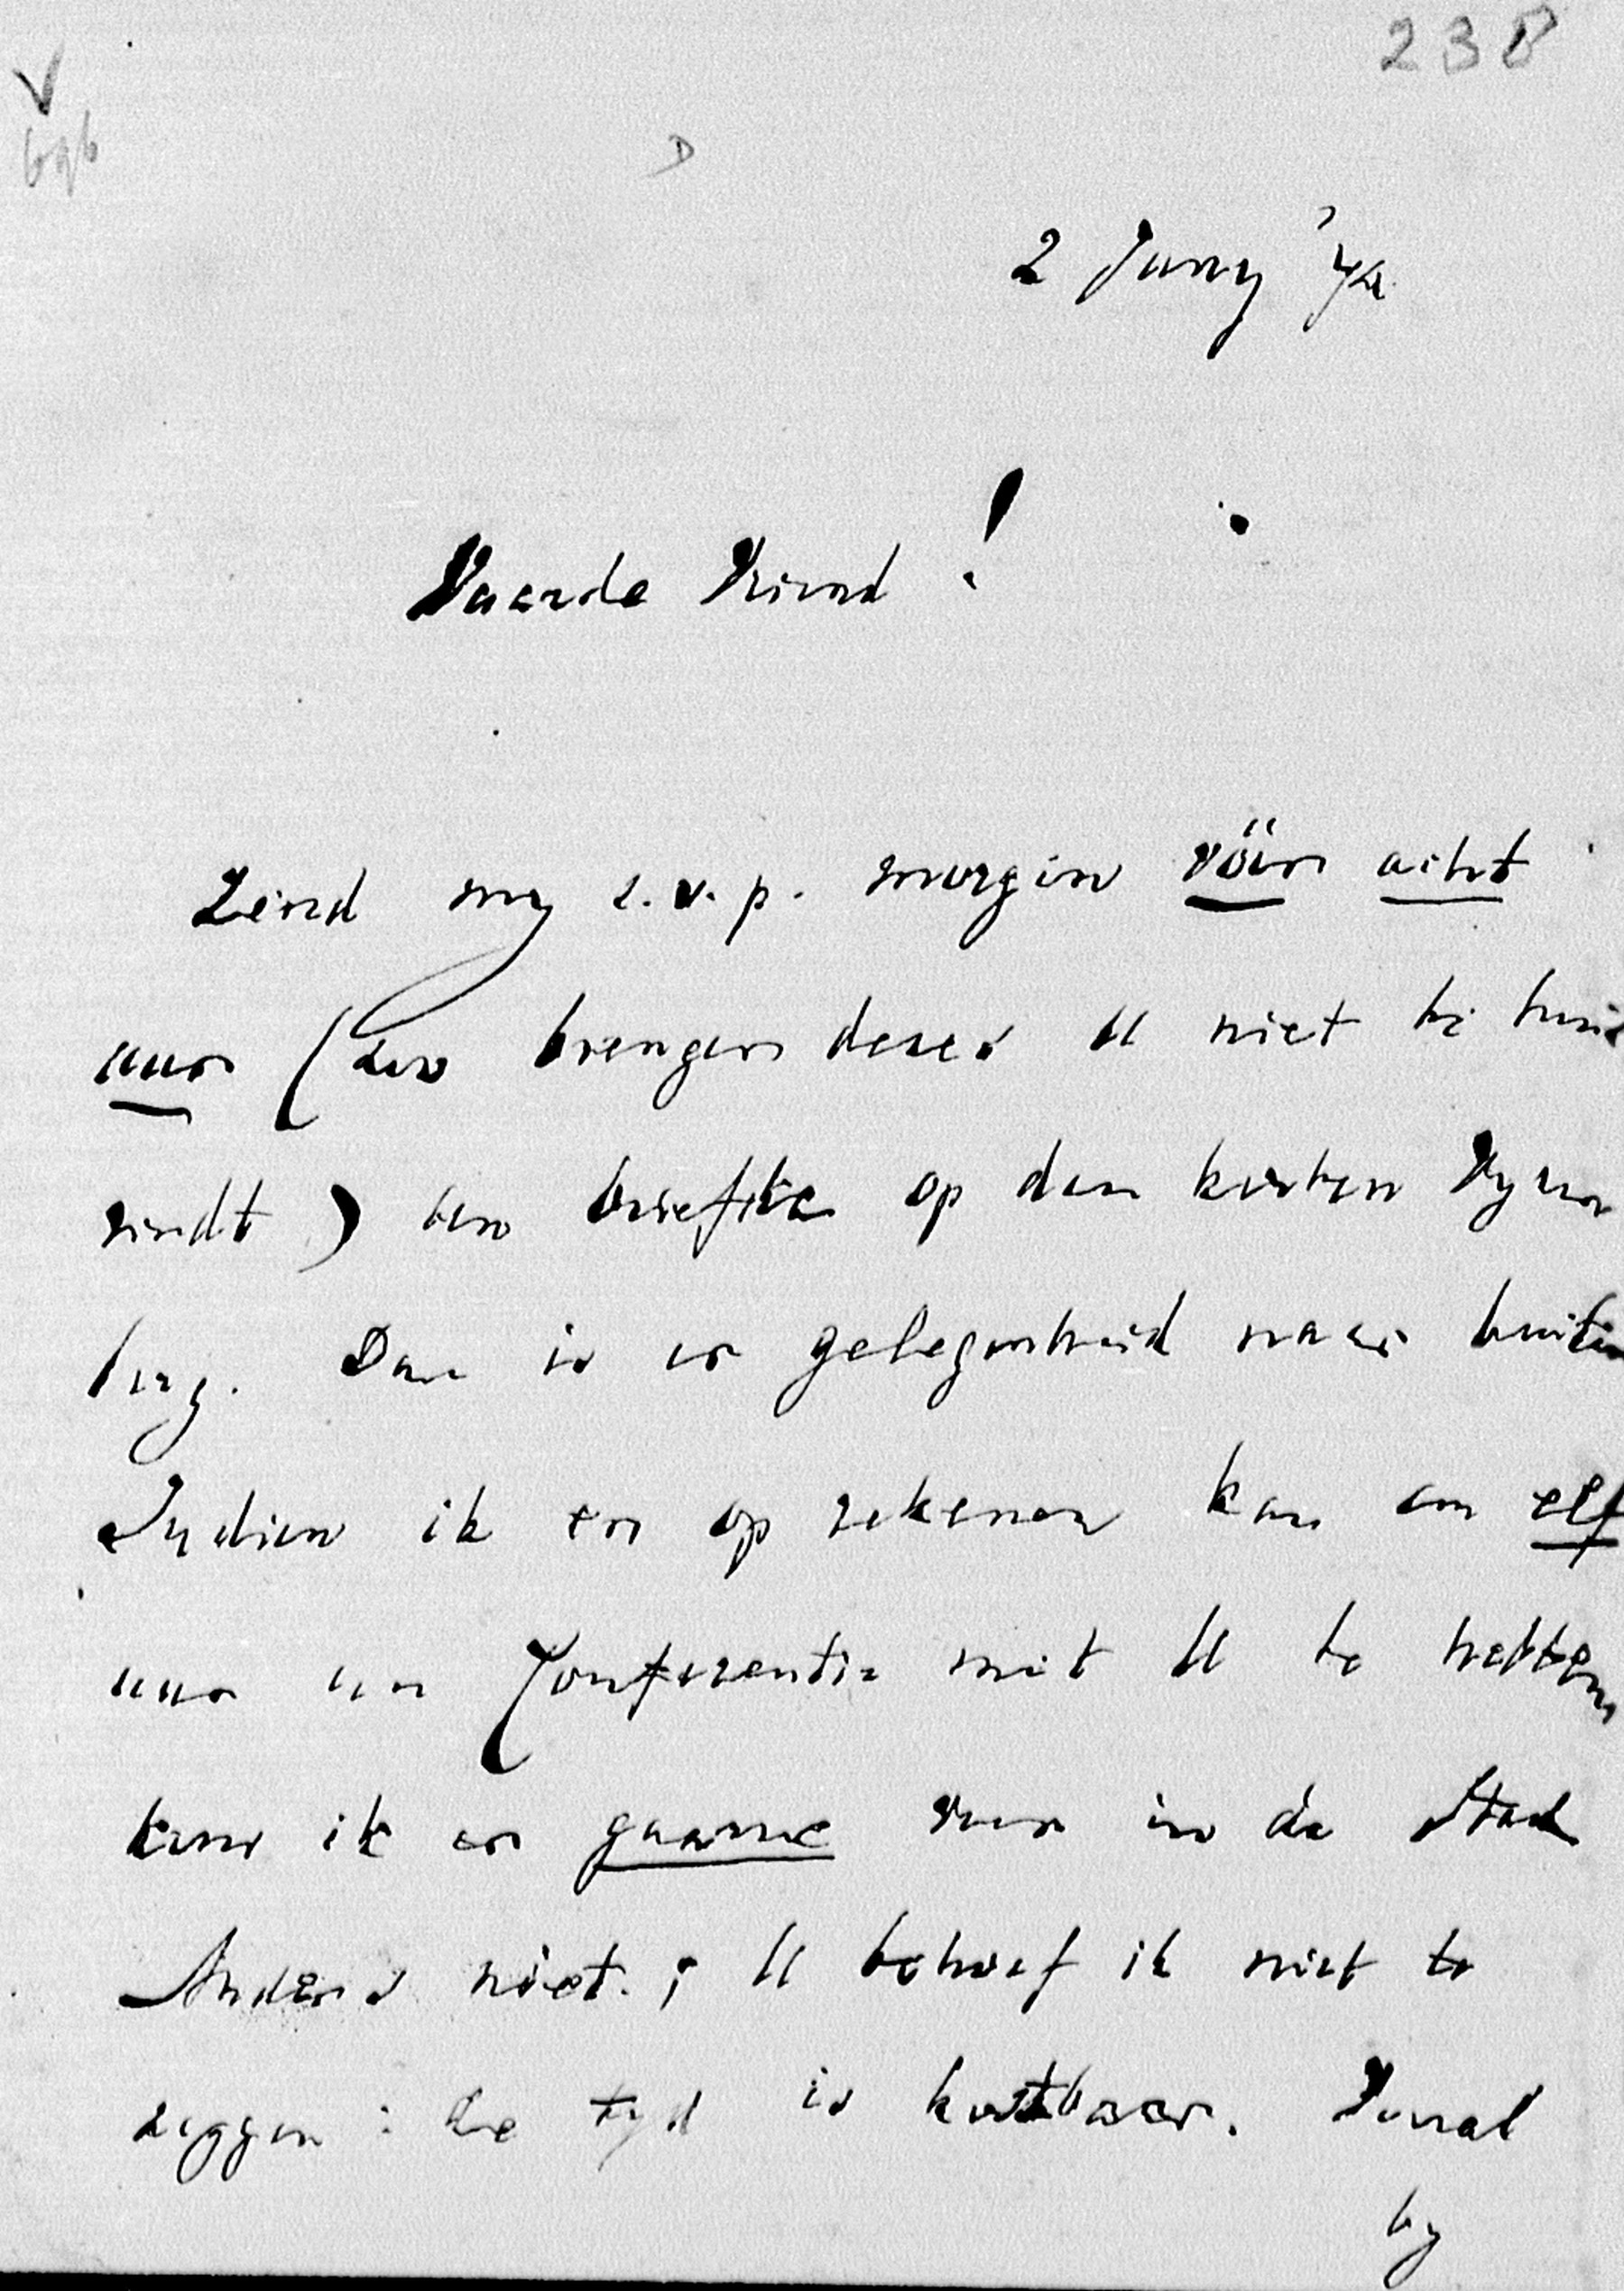 238
2 Juny '72
Waarde Vriend!
Zend my s.v.p. morgen vóór acht
uur (zoo brenger dezes U niet te huis
vindt) een briefje op den kosten
berg. Dan is er gelegenheid naar buiten
Indien ik er op rekenen kan om elf
uur een Conferentie met U te hebben
kom ik er gaarne voor in de Stad
Anders niet.; U behoef ik niet te
zeggen: de tyd is kostbaar. Vooral
by